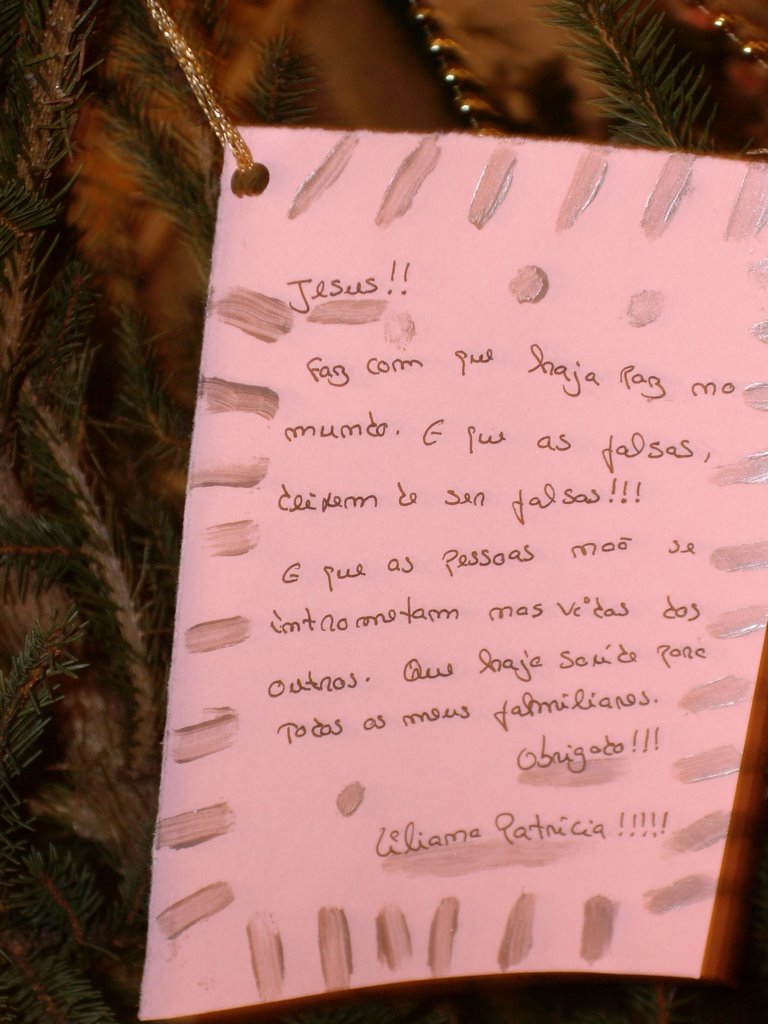 Jesus!!
Faz com que haja Paz no
mundo. E que as falsas,
deixem de ser falsas!!!
E que as pessoas não se
intrometam nas vidas dos
outros. Que haja saúde para
Todos os meus falmiliares.
Obrigado!!!
Liliana Patrícia !!!!!